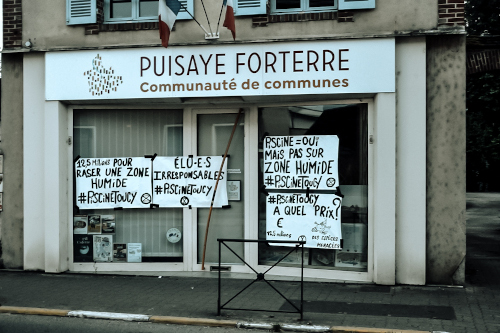 PUISAYE FORTERRE
Communauté de communes
12,5 MILLIONS POUR
RASER UNE ZONE
HUMIDE
#PISCINETOUCY
ÉLU·E·S
IRRESPONSABLES
#PISCINETOUCY
PISCINE = OUI
MAIS PAS SUR
ZONE HUMIDE
#PISCINETOUCY
#PISCINETOUCY
A QUEL PRIX?
€
12,5 millions
DES ESPÈCES
MENACÉES